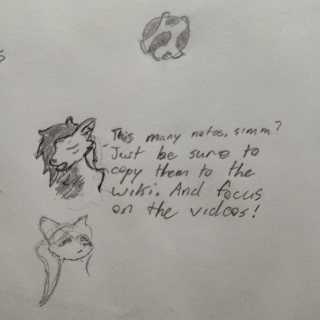 This many notes, simm?
Just be sure to
copy them to the
wiki. And focus
on the videos!